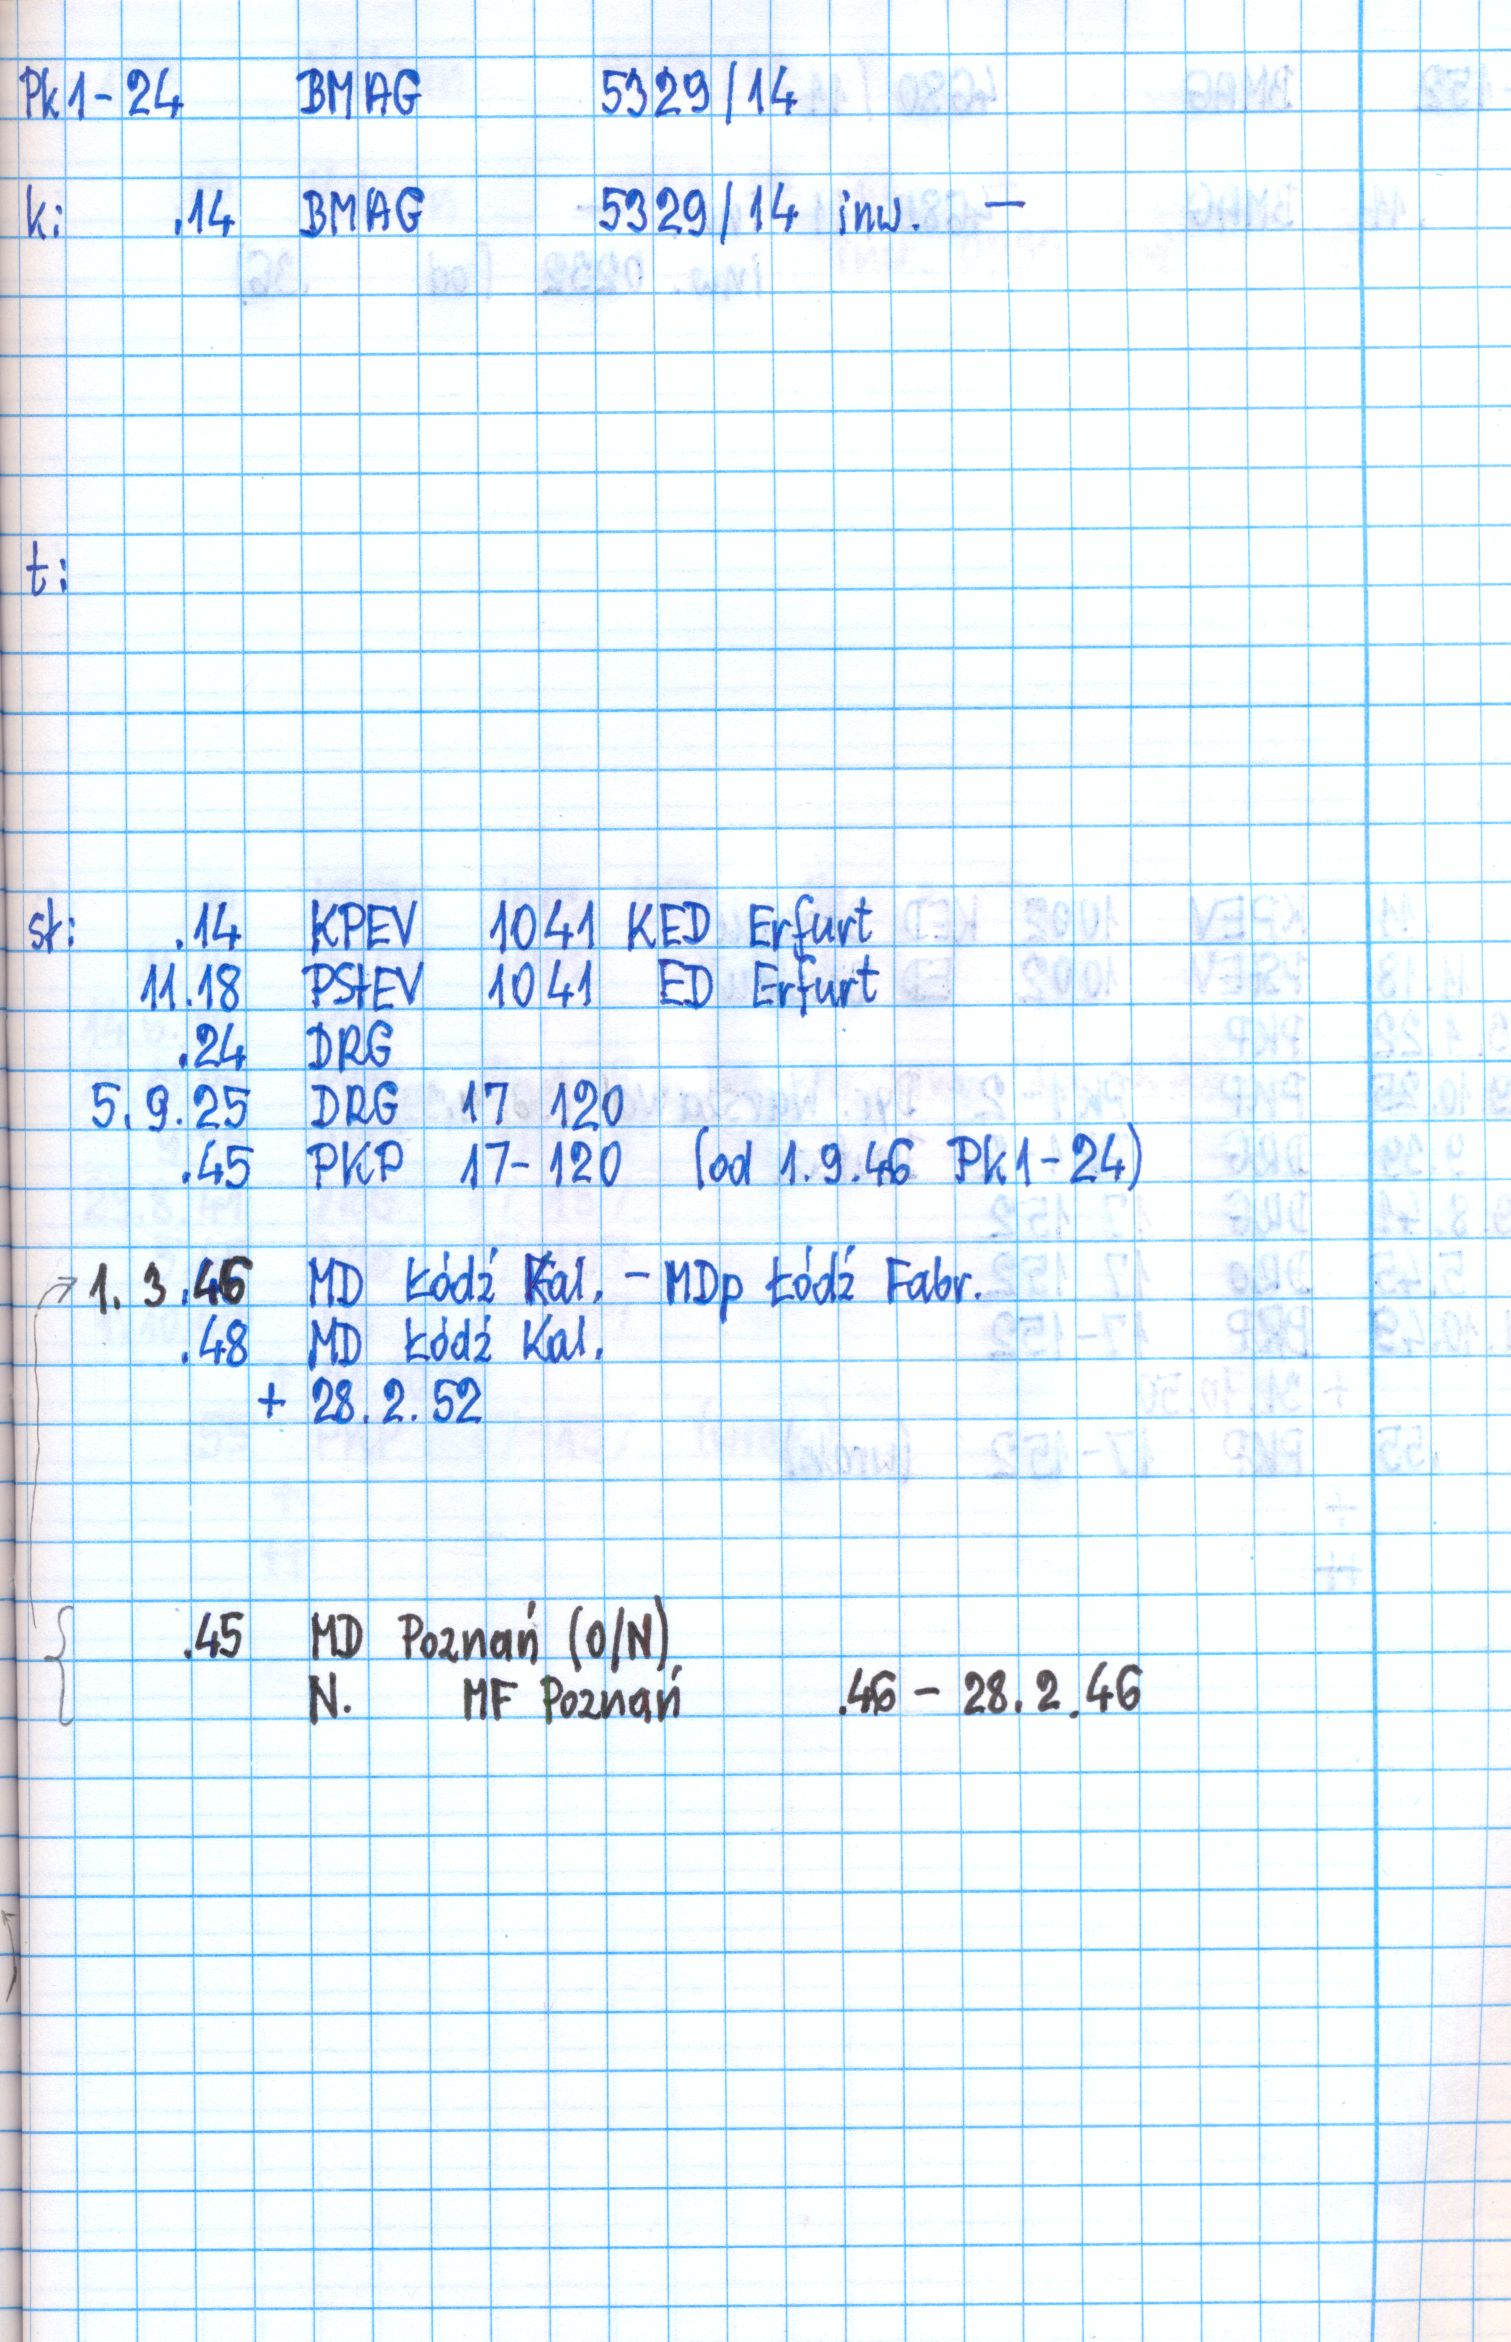 Pk1-24 BMAG 5329/14
k: .14 BMAG 5329/14 inw. —
t:
st: .14 KPEV 1041 KED Erfurt
11.18 PStEV 1041 ED Erfurt
.24 DRG
5.9.25 DRG 17 120
.45 PKP 17-120 (od 1.9.46 Pk1-24)
1.3.46 MD Łódź Kal. - MDp Łódź Fabr.
.48 MD Łódź Kal.
+ 28.2.52
.45 MD Poznań (O/N)
N. MF Poznań .46 - 28.2.46